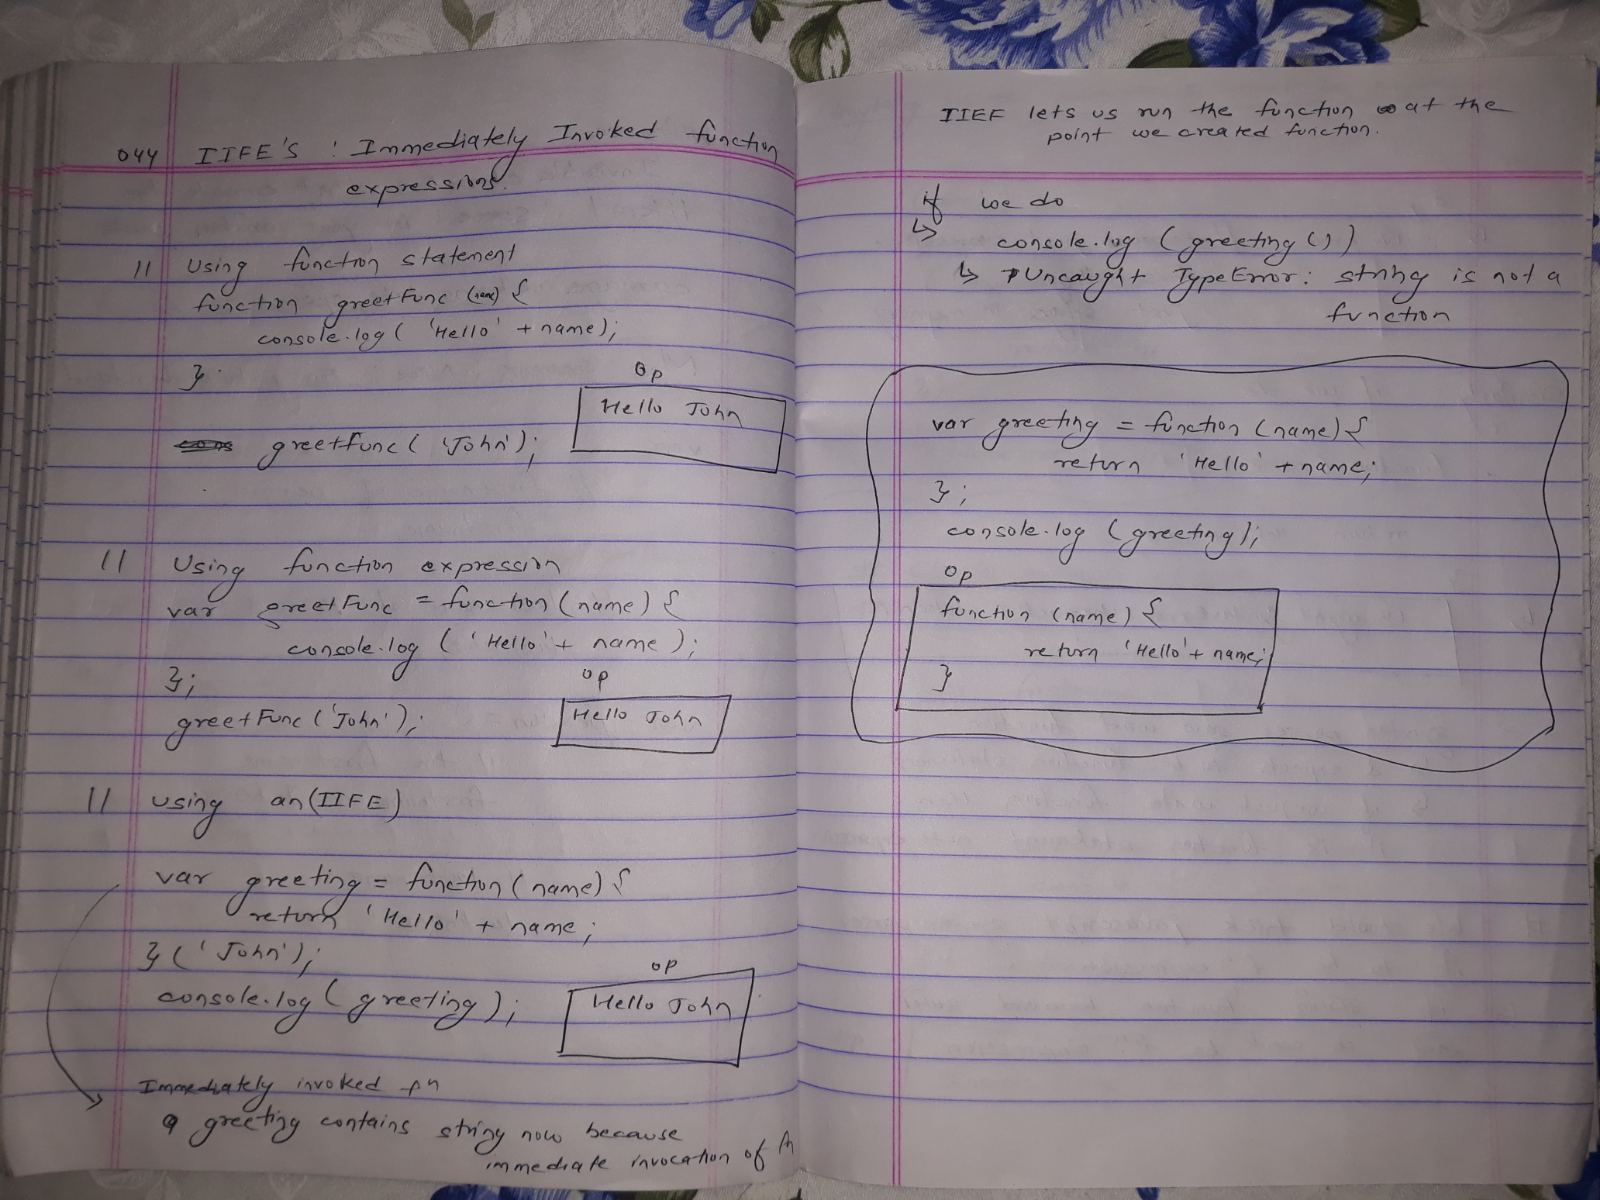 044 IIFE'S : Immediately Invoked function
expressions.
// Using function statement
function greetFunc (name) {
console.log( 'Hello' + name);
}
greetfunc( 'John');
Op
Hello John
// Using function expression
var greetFunc = function (name) {
console.log ( 'Hello' + name );
};
greetFunc ('John');
op
Hello John
// using an (IIFE)
var greeting = function (name) {
return 'Hello' + name;
} ('John');
console.log ( greeting );
op
Hello John
Immediately invoked fn
greeting contains string now because
immediate invocation of fn
IIEF lets us run the function at the
point we created function.
if we do
↳ console.log (greeting ())
↳ Uncaught TypeError: string is not a
function
var greeting = function (name) {
return 'Hello' + name;
};
console.log (greeting);
Op
function (name) {
return 'Hello' + name;
}